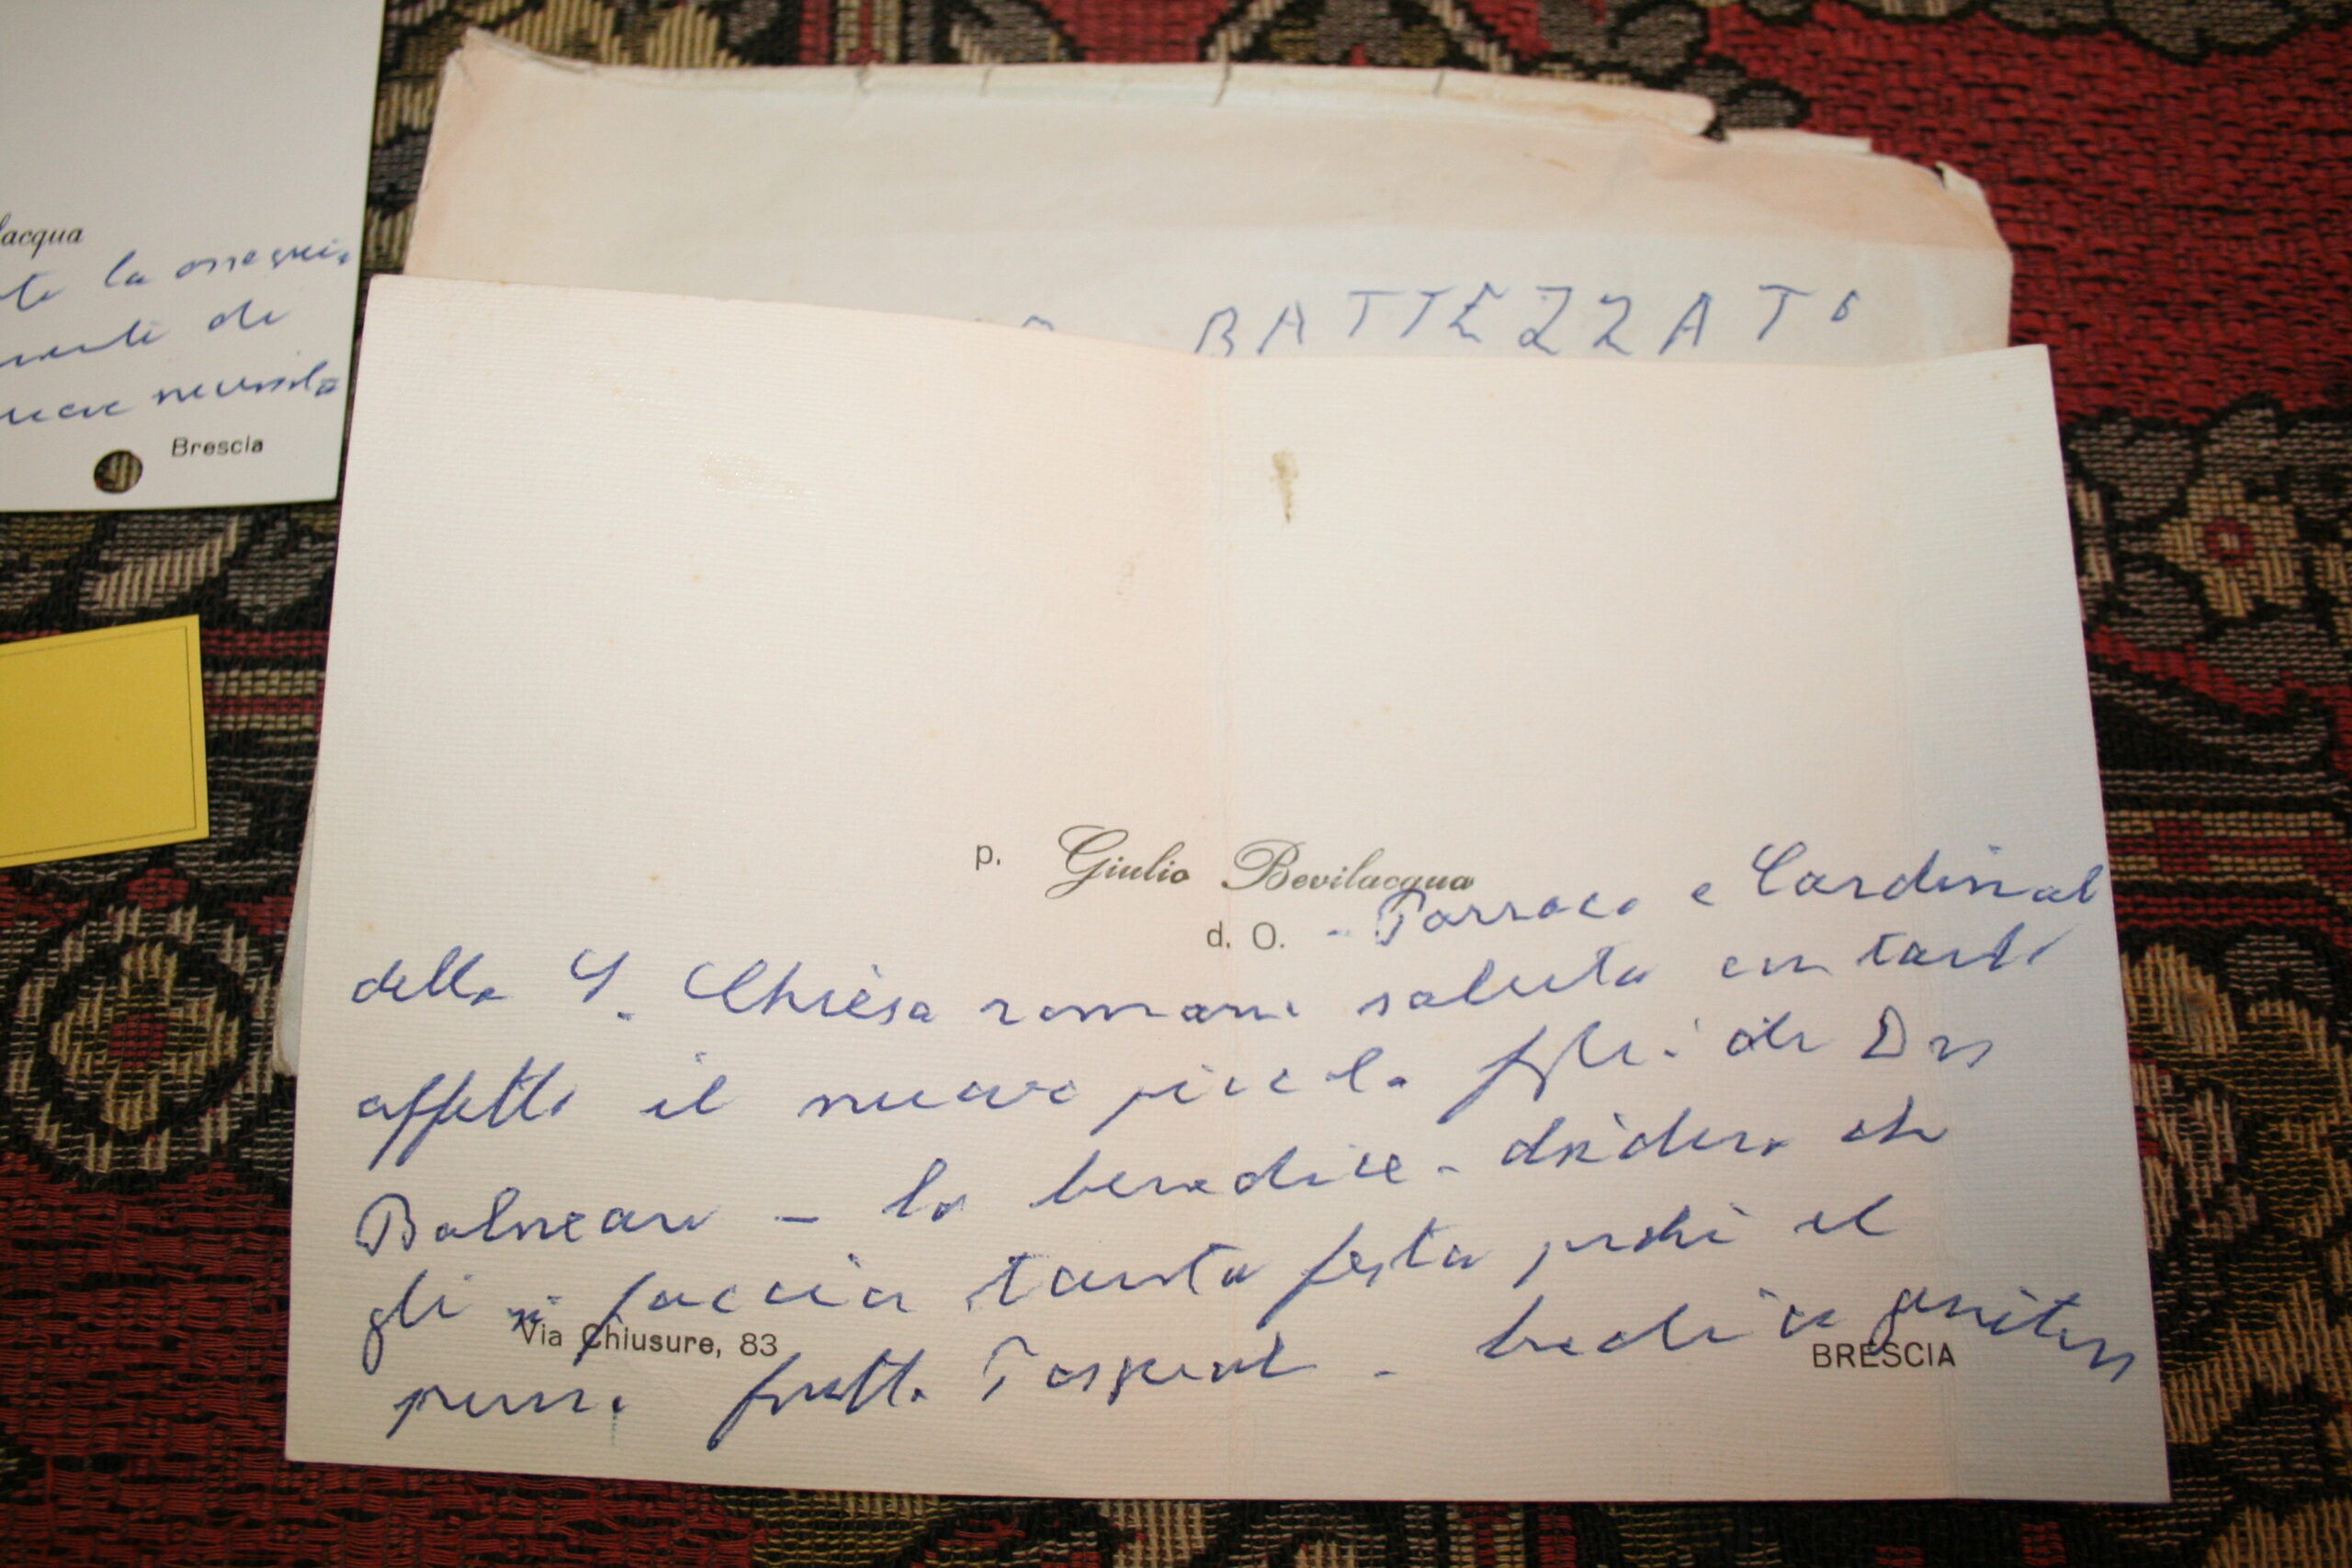 lacqua
la
di
Brescia
BATTEZZATO
p. Giulio Bevilacqua
d. O. - Parroco e Cardinal
della S. Chiesa romana saluta con tanto
affetto il nuovo piccolo figlio di Dio
- lo benedice - desidera che
gli si faccia tanta festa perché il
Via Chiusure, 83
BRESCIA
primo frutto Pasquale - benedice genitori